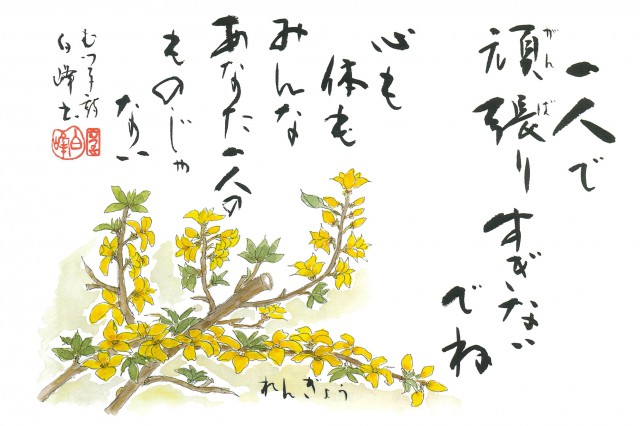 一人で
頑張りすぎない
でね
心も
体も
みんな
あなた一人の
ものじゃ
ない
むつ子詩
白峰書
れんぎょう